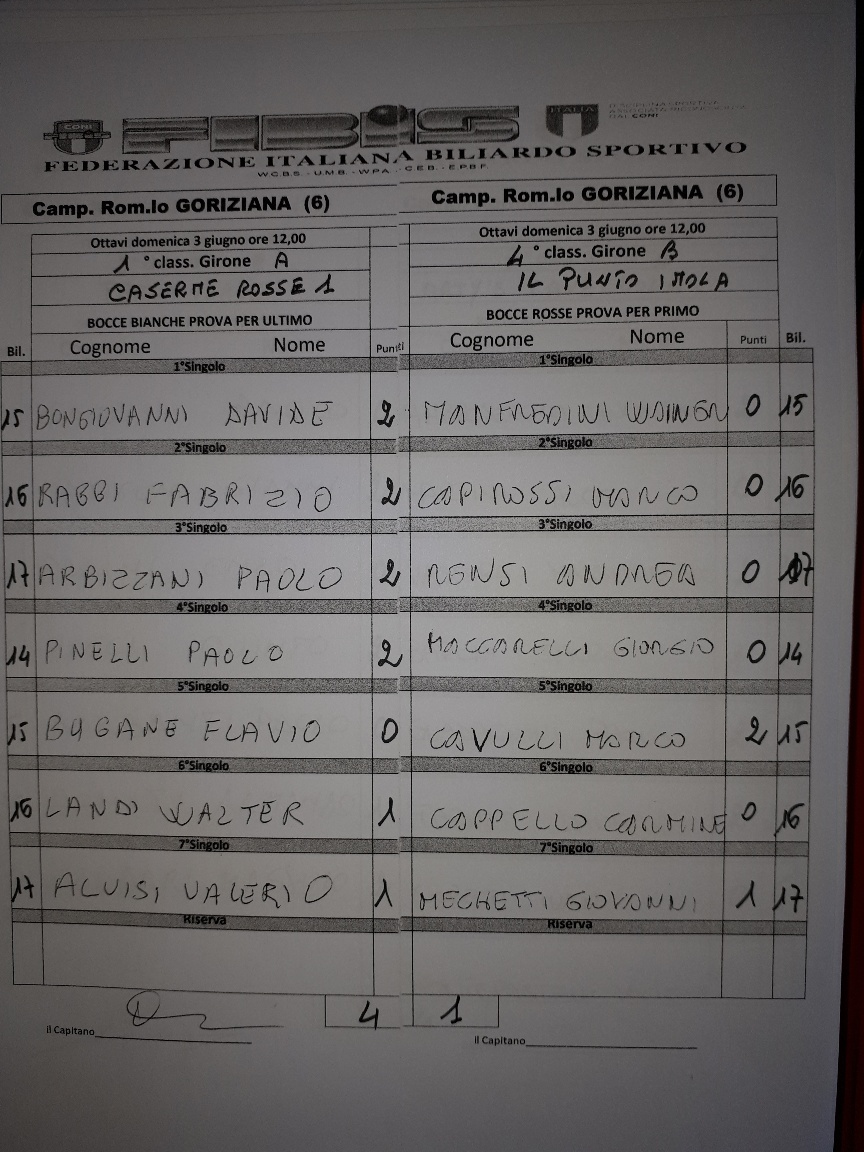 CONI FIBiS ITALIA
DAL CONI
FEDERAZIONE ITALIANA BILIARDO SPORTIVO
W.C.B.S. - U.M.B. - WPA - C.E.B. - E.P.B.F.
Camp. Rom.lo GORIZIANA (6) Camp. Rom.lo GORIZIANA (6)
Ottavi domenica 3 giugno ore 12,00 Ottavi domenica 3 giugno ore 12,00
1 ° class. Girone A 4 ° class. Girone B
CASERME ROSSE 1 IL PUNTO IMOLA
BOCCE BIANCHE PROVA PER ULTIMO BOCCE ROSSE PROVA PER PRIMO
Bil. Cognome Nome Punti Cognome Nome Punti Bil.
1°Singolo 1°Singolo
15 BONGIOVANNI DAVIDE 2 MANFREDINI WAINER 0 15
2°Singolo 2°Singolo
16 RABBI FABRIZIO 2 CAPIROSSI MARCO 0 16
3°Singolo 3°Singolo
17 ARBIZZANI PAOLO 2 RENSI ANDREA 0 17
4°Singolo 4°Singolo
14 PINELLI PAOLO 2 MACCARELLI GIORGIO 0 14
5°Singolo 5°Singolo
15 BUGANE FLAVIO 0 CAVULLI MARCO 2 15
6°Singolo 6°Singolo
16 LANDI WALTER 1 CAPPELLO CARMINE 0 16
7°Singolo 7°Singolo
17 ALVISI VALERIO 1 MECHETTI GIOVANNI 1 17
Riserva Riserva
4 1
Il Capitano Il Capitano